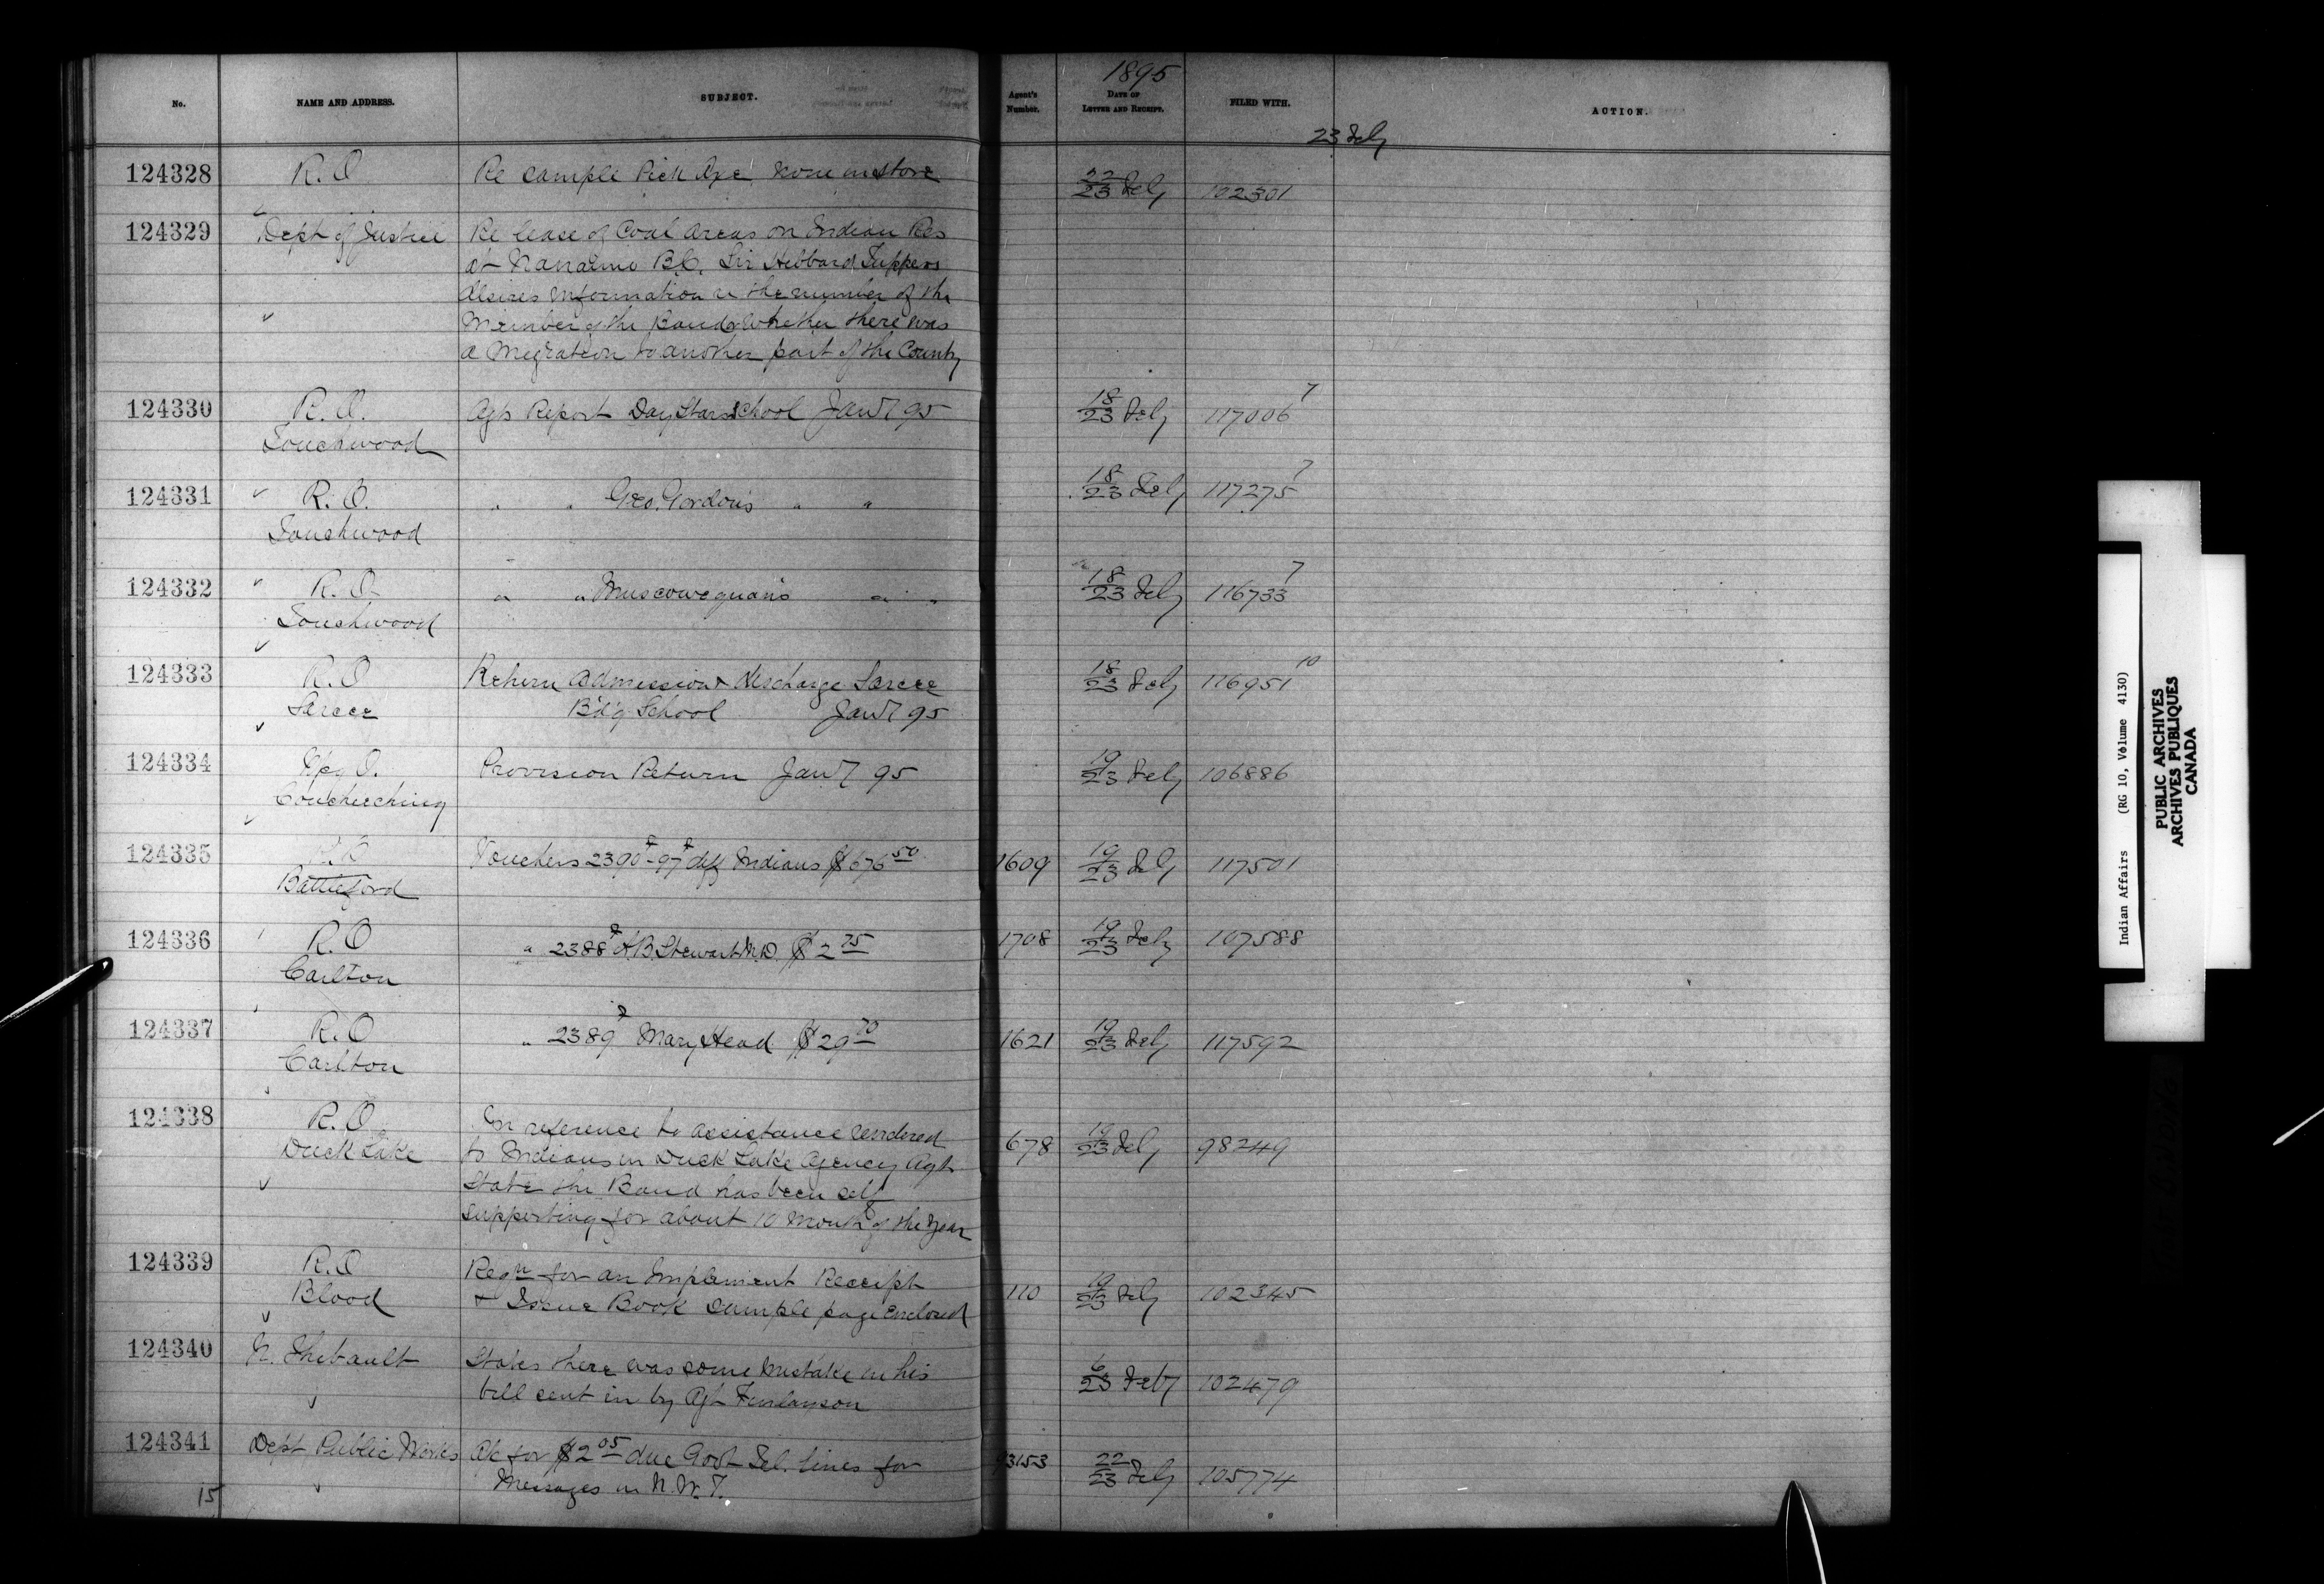 1895
No. NAME AND ADDRESS. SUBJECT. Agent's Number. DATE OF LETTER AND RECEIPT. FILED WITH. ACTION.
23 Feby
124328 R.O Re sample Pick Axe none in store 22/23 Feby 102301
124329 Dept of Justice Re lease of Coal Areas on Indian Res
at Nanaimo B.C. Sir Hibbard Tupper
desires information re the number of the
Member of the Band & whether there was
a Migration to another part of the County
124330 R.O. Agts Report Day Stars School Jany 95 18/23 Feby 117006 7
Touchwood
124331 R.O. " " Geo. Gordon's " " 18/23 Feby 117275 7
Touchwood
124332 R.O " " Muscowequan's " " 18/23 Feby 116733 7
Touchwood
124333 R.O Return Admission & discharge Sarcee 18/23 Feby 116951 10
Sarcee Bd'g School Jany 95
124334 Wpg O. Provision Return Jany 95 19/23 Feby 106886
Coucheeching
124335 R.O Vouchers 2390-97 diff Indians $676 50 1609 19/23 Feby 117501
Battleford
124336 R.O " 2388 A.B. Stewart M.D. $2 75 1708 19/23 Feby 107588
Carlton
124337 R.O " 2389 Mary Head $29 70 1621 19/23 Feby 117592
Carlton
124338 R.O. In reference to assistance rendered
Duck Lake to Indians in Duck Lake Agency Agt 678 19/23 Feby 98249
State the Band has been self
supporting for about 10 Month of the Year
124339 R.O Reqn for an Implement Receipt
Blood & Issue Book sample page enclosed 110 19/23 Feby 102345
124340 N. Thibault States there was some mistake in his
bill sent in by Agt Finlayson 6/23 Feby 102479
124341 Dept Public Works A/c for $2 05 due Govt Tel. lines for 93153 22/23 Feby 105774
Messages in N.W.T.
15
Indian Affairs (RG 10, Volume 4130)
PUBLIC ARCHIVES
ARCHIVES PUBLIQUES
CANADA